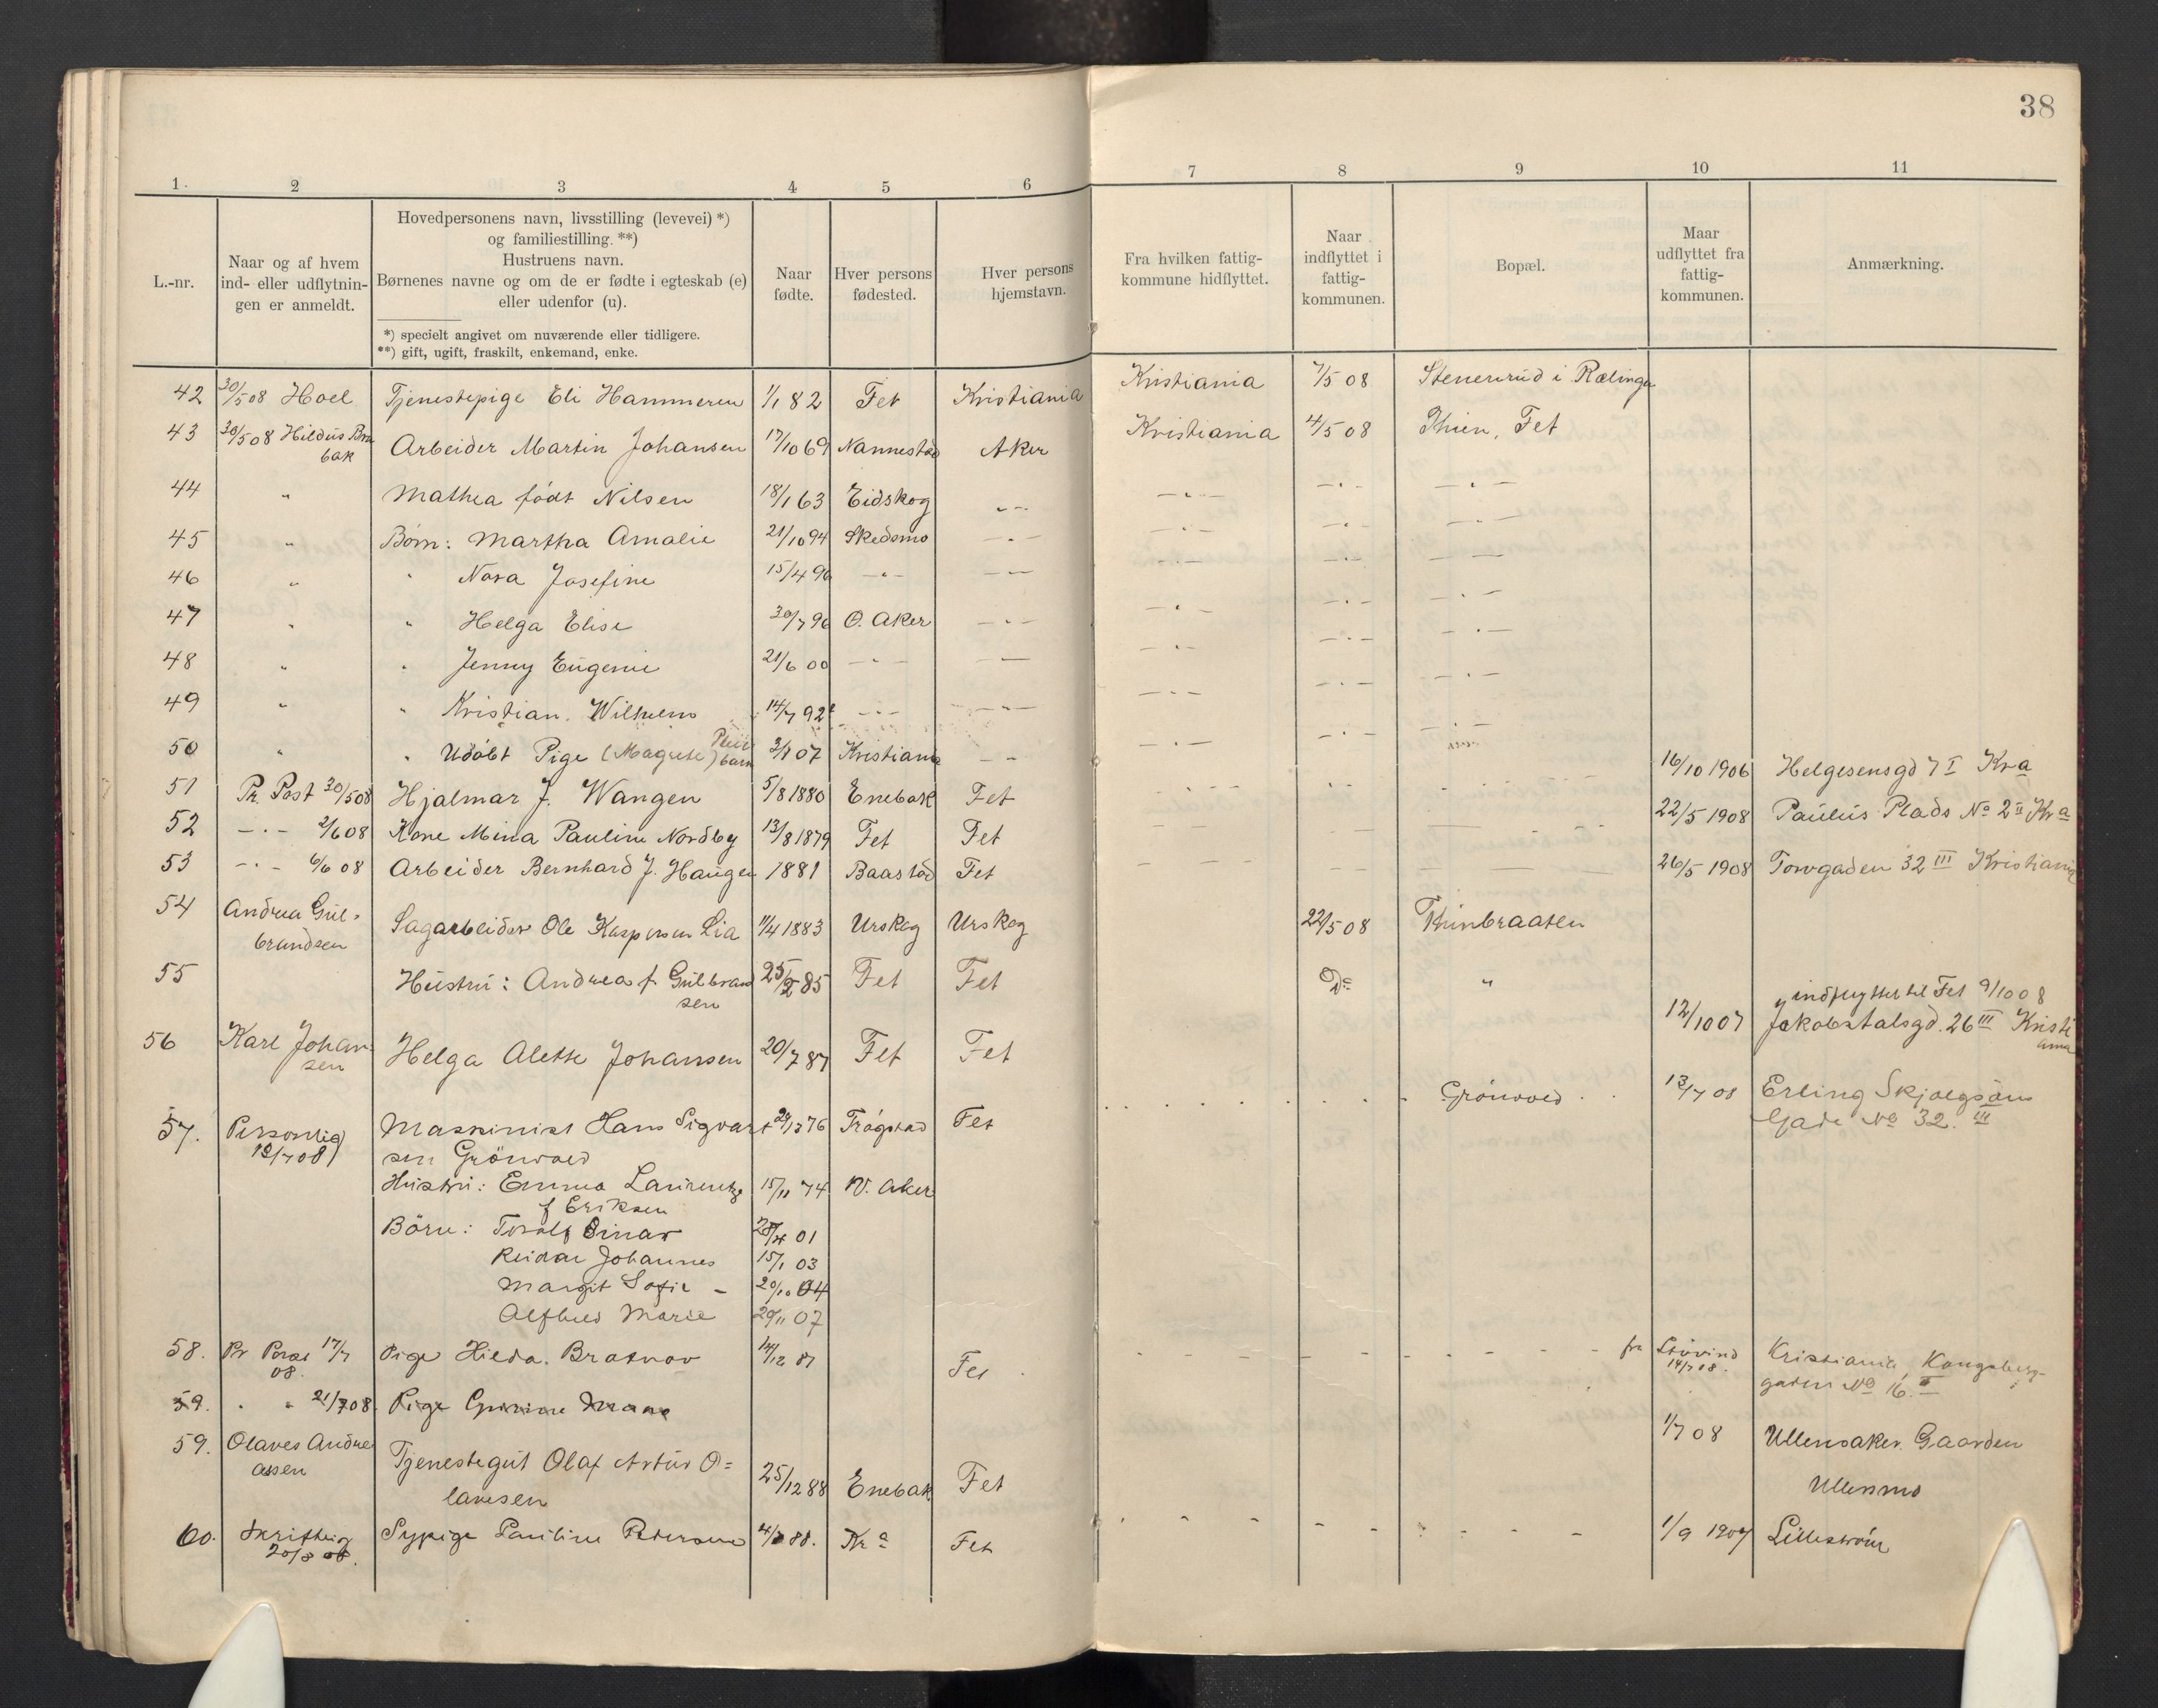 38
1. 2 3 4 5 6 7 8 9 10 11
L.-nr.
Naar og af hvem
ind- eller udflytnin-
gen er anmeldt.
Hovedpersonens navn, livsstilling (levevei) *)
og familiestilling. **)
Hustruens navn.
Børnenes navne og om de er fødte i egteskab (e)
eller udenfor (u).
*) specielt angivet om nuværende eller tidligere.
**) gift, ugift, fraskilt, enkemand, enke.
Naar
fødte.
Hver persons
fødested.
Hver persons
hjemstavn.
Fra hvilken fattig-
kommune hidflyttet.
Naar
indflyttet i
fattig-
kommunen.
Bopæl.
Maar
udflyttet fra
fattig-
kommunen.
Anmærkning.
42 30/5 08 Hoel Tjenestepige Eli Hammeren 1/1 82 Fet Kristiania Kristiania 7/5 08 Stenersrud i Rælingen
43 30/5 08 Hildus Bra
bak Arbeider Martin Johansen 17/10 69 Nannestad Aker Kristiania 4/5 08 Thien, Fet
44 " Mathea født Nilsen 18/1 63 Eidskog - " - - " - - " - - " -
45 " Børn: Martha Amalie 21/10 94 Skedsmo - " - - " - - " - - " -
46 " " Nora Josefine 15/4 96 - " - - " - - " - - " - - " -
47 " " Helga Elise 30/7 96 Ø. Aker - " - - " - - " - - " -
48 " " Jenny Eugenie 21/6 00 - " - - " - - " - - " - - " -
49 " " Kristian Wilhelm 14/7 92 - " - - " - - " - - " - - " -
50 " " Udøbt Pige (Magrete) Pleie
barn 3/1 07 Kristiania - " - - " - - " - - " -
51 Pr. Post 30/5 08 Hjalmar J. Wangen 5/8 1880 Enebak Fet 16/10 1906 Helgesensgd 7 I Kra
52 - " - 2/6 08 Kone Mina Pauline Nordby 13/8 1879 Fet Fet 22/5 1908 Paulus Plads No 2 II Kra
53 - " - 6/6 08 Arbeider Bernhard J. Haugen 1881 Baastad Fet 26/5 1908 Torvgaden 32 III Kristiania
54 Andrea Gul-
brandsen Sagarbeider Ole Kaspersen Lia 11/4 1883 Urskog Urskog 22/5 08 Thinbraaten
55 Hustru: Andrea f. Gulbrand
sen 25/2 85 Fet Fet Do "
indflyttet til Fet 9/10 08
56 Karl Johan-
sen Helga Alette Johansen 20/7 87 Fet Fet 12/10 07 Jakobs talsgd. 26 III Kristi
ania
57. Personlig
13/7 08 Maskinist Hans Sigvart 24/3 76 Trøgstad Fet Grönvold 13/7 08 Erling Skjalgsöns
Gade No 32. III
sen Grönvold
Hustru: Emma Laurentze 15/11 74 V. Aker
f Eriksen
Börn: Toralf Einar 28/4 01
Reidar Johannes 15/1 03
Margit Sofie - 20/10 04
Alfhild Marie 29/11 07
58. Pr Post 17/7
08. Pige Hilda. Bratnov 14/12 87 Fet fr Stövind
14/7 08. Kristiania, Kongsberg-
gaden No 16. II
59. " " 21/7 08. Pige
59. Olaves Andre
assen Tjenestegut Olaf Artur O=
lavesen 25/12 88 Enebak Fet 1/7 08 Ullensaker. Gaarden
Ullenmo
60. Skriftlig
20/8 08. Sypige Pauline Pedersen 4/8 88. Kra Fet 1/9 1907 Lilleström